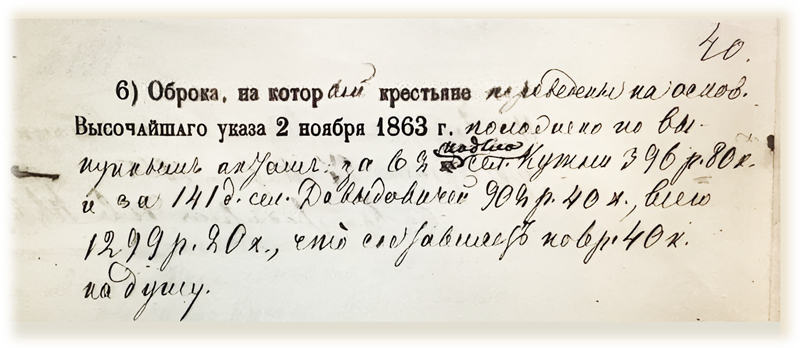 40.
6) Оброка, на который крестьяне переведены на основ.
Высочайшаго указа 2 ноября 1863 г. положено по вы-
купнымъ актамъ: за 62 надѣла сел. Кужли 396 р. 80 к.
и за 141 д. сел. Довыдовичей 902 р. 40 к., всего
1299 р. 20 к., что составляетъ по 6 р. 40 к.
на душу.